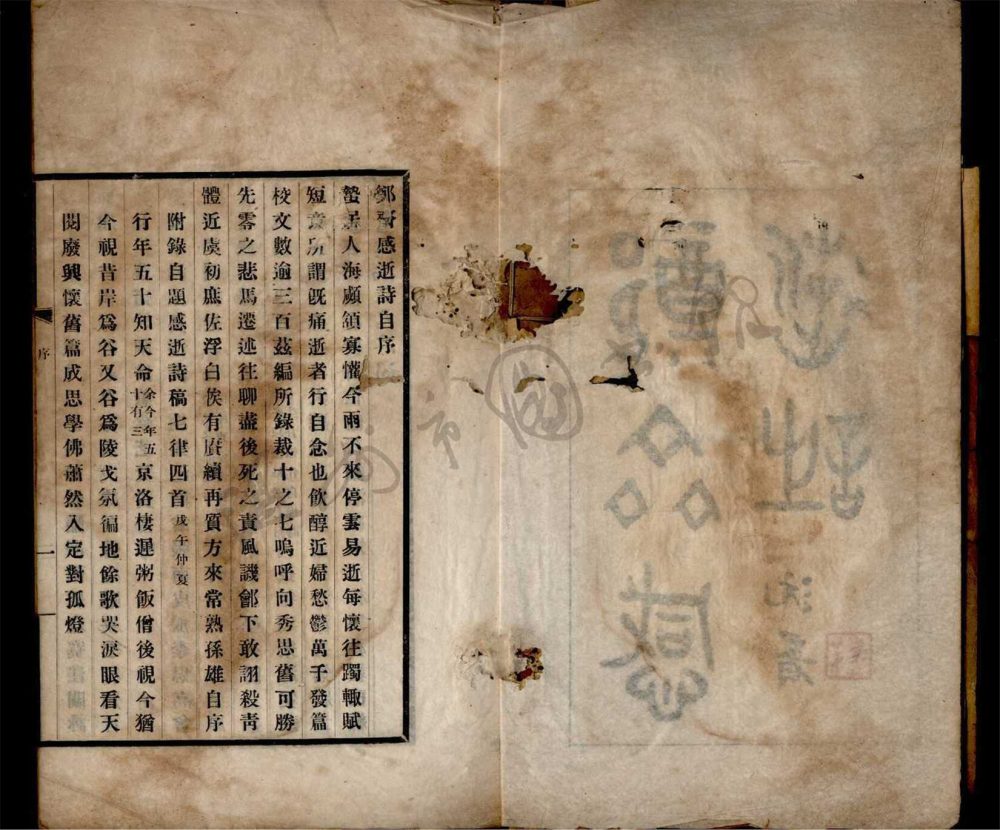 鄭齋感逝詩自序
蟄居人海顑頷寡懽今雨不來停雲易逝每懷往躅輒賦
短章所謂既痛逝者行自念也飲醇近婦愁鬱萬千發篇
校文數逾三百茲編所錄裁十之七嗚呼向秀思舊可勝
先零之悲馬遷述往聊盡後死之責風譏鄶下敢詡殺靑
體近虞初庶佐浮白俟有賡續再質方來常熟孫雄自序
附錄自題感逝詩稿七律四首戊午仲夏
行年五十知天命余今年五十有三京洛棲遲粥飯僧後視今猶
今視昔岸爲谷又谷爲陵戈氛徧地餘歌哭淚眼看天
閱廢興懷舊篇成思學佛蕭然入定對孤燈
序
一